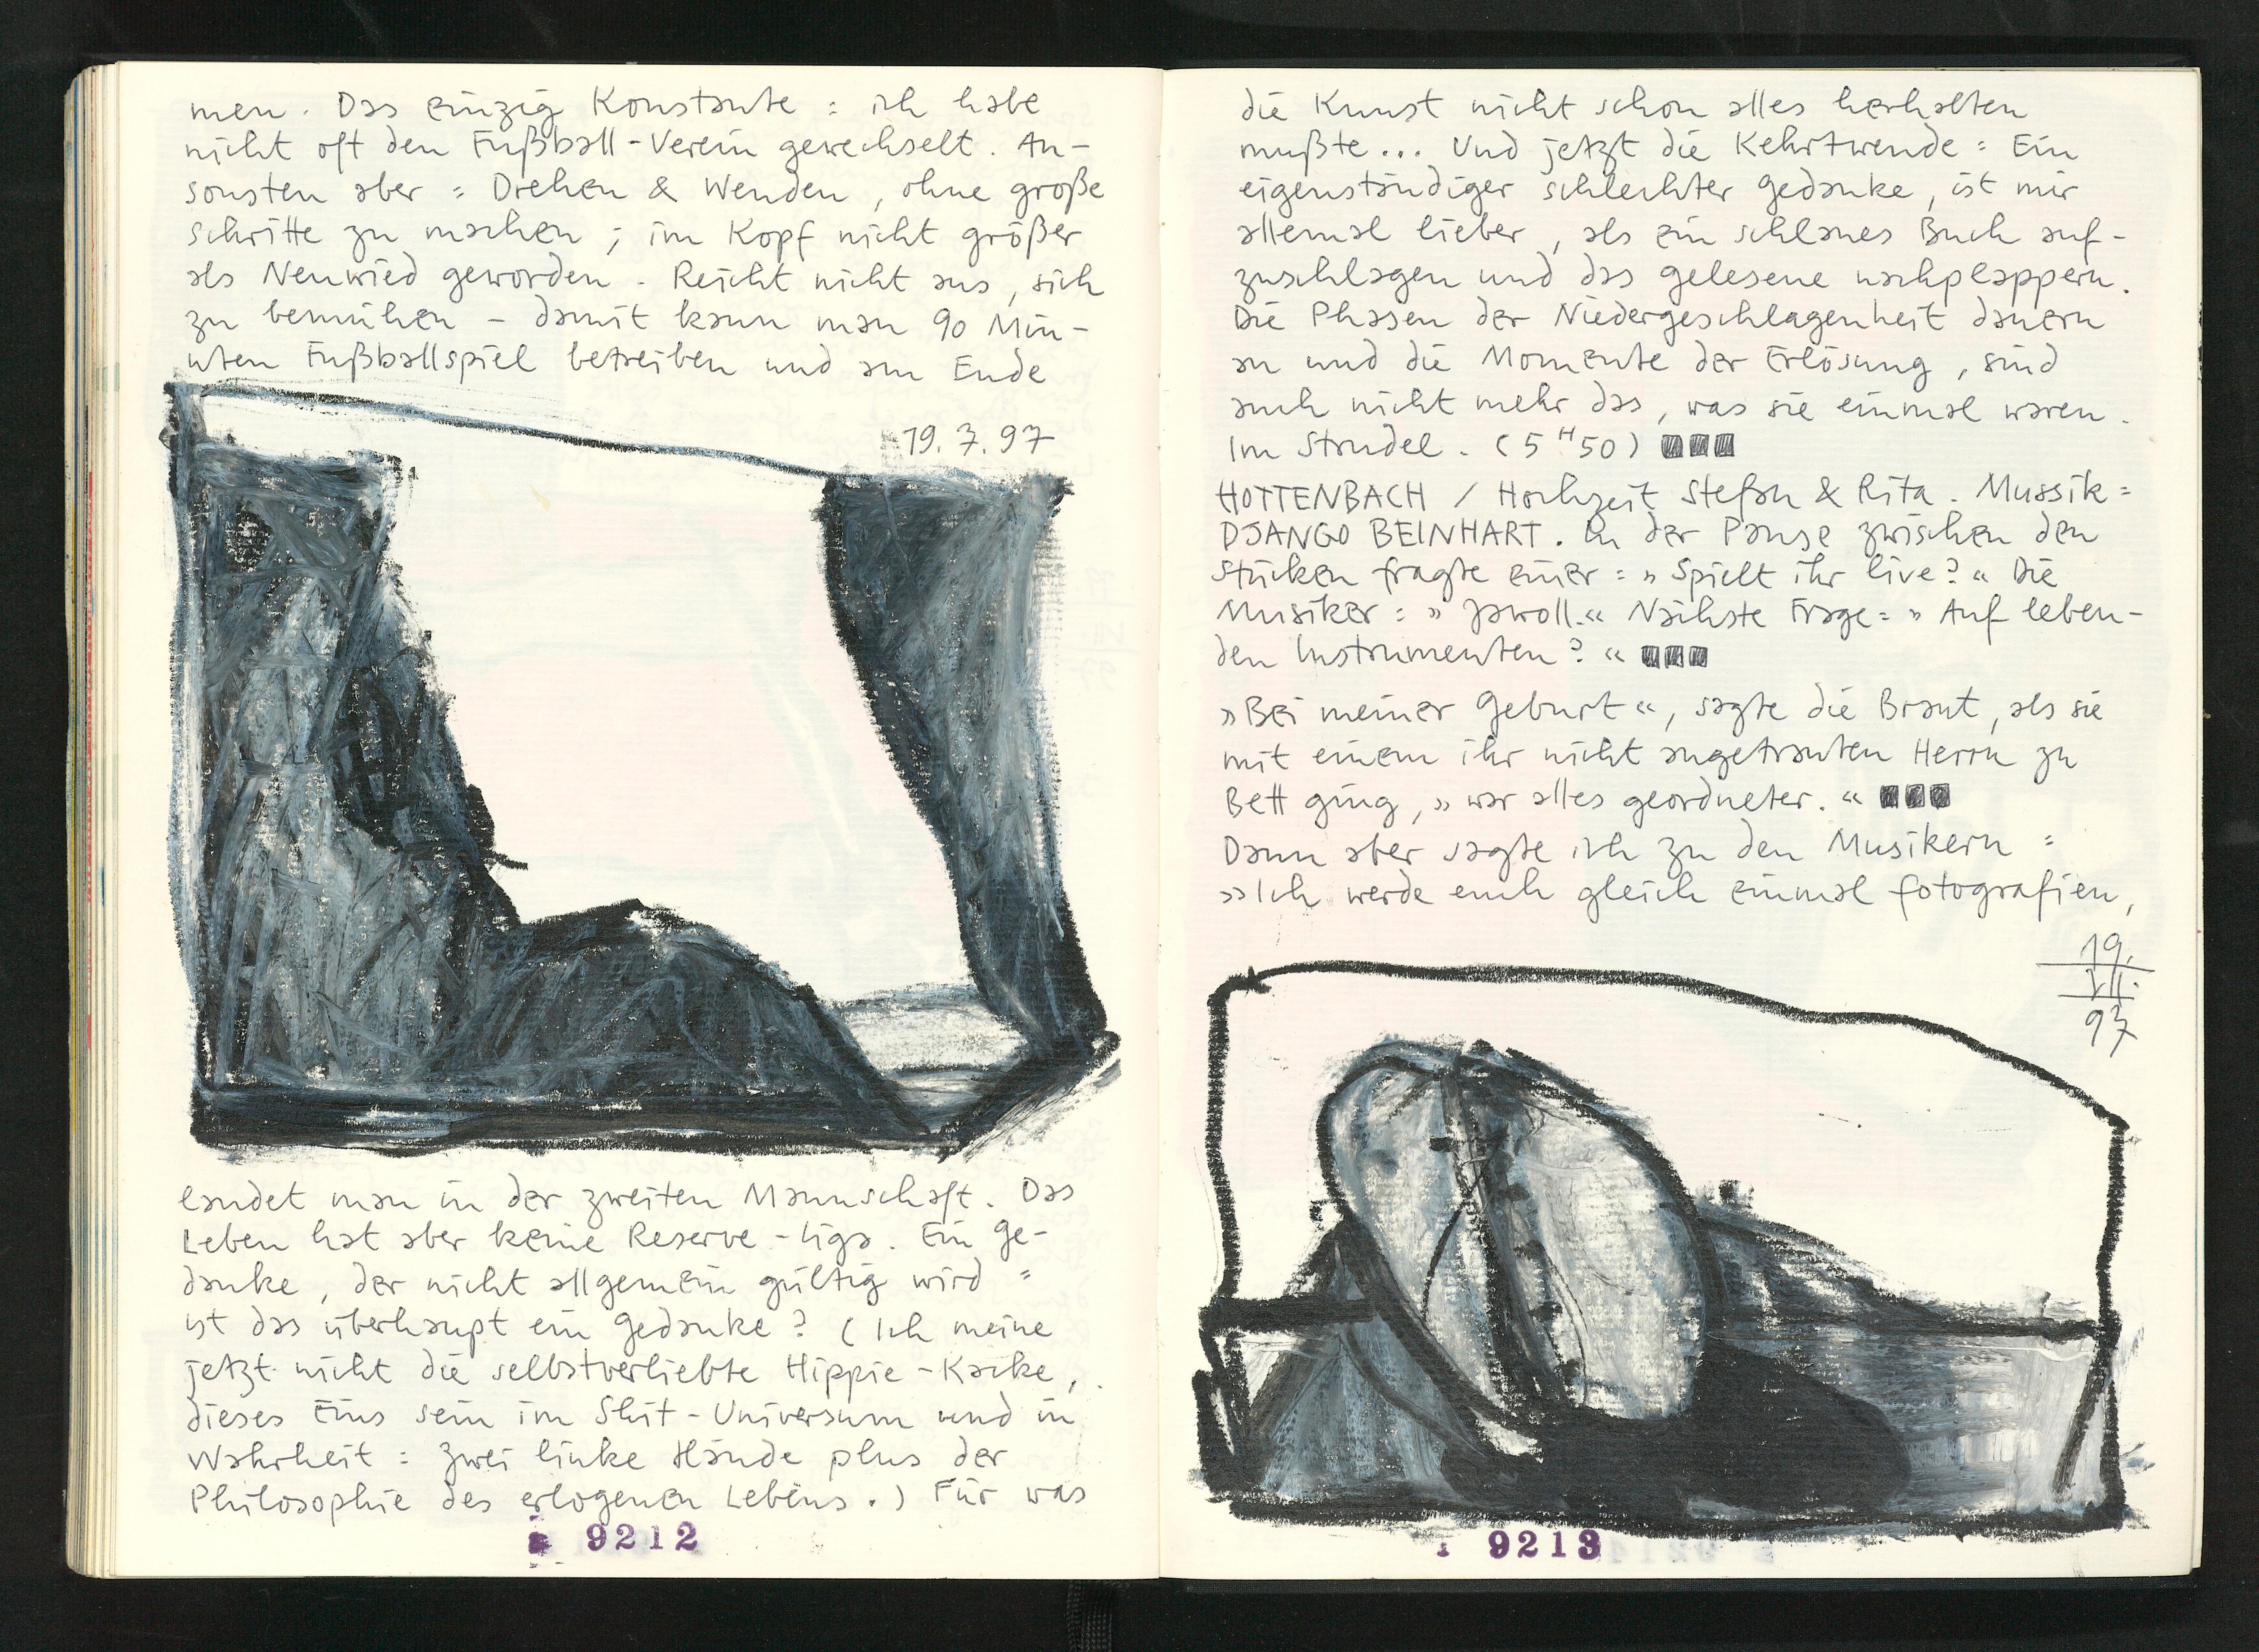 men. Das einzig Konstante: ich habe
nicht oft den Fußball-Verein gewechselt. An-
sonsten aber: Drehen & Wenden, ohne große
Schritte zu machen; im Kopf nicht größer
als Neuwied geworden. Reicht nicht aus, sich
zu bemühen – damit kann man 90 Min-
uten Fußballspiel betreiben und am Ende
19.7.97
landet man in der zweiten Mannschaft. Das
Leben hat aber keine Reserve-Liga. Ein Ge-
danke, der nicht allgemein gültig wird:
ist das überhaupt ein Gedanke? (Ich meine
jetzt nicht die selbstverliebte Hippie-Kacke,
dieses Eins sein im Shit-Universum und in
Wahrheit: zwei linke Hände plus der
Philosophie des erlogenen Lebens.) Für was
9212
die Kunst nicht schon alles herhalten
mußte... Und jetzt die Kehrtwende: Ein
eigenständiger schlechter Gedanke, ist mir
allemal lieber, als ein schlaues Buch auf-
zuschlagen und das gelesene nachplappern.
Die Phasen der Niedergeschlagenheit dauern
an und die Momente der Erlösung, sind
auch nicht mehr das, was sie einmal waren.
Im Strudel. (5H50)
HOTTENBACH / Hochzeit Stefan & Rita. Mussik:
DJANGO BEINHART. In der Pause zwischen den
Stücken fragte einer: »Spielt ihr live?« Die
Musiker: »Jawoll.« Nächste Frage: »Auf leben-
den Instrumenten?«
»Bei meiner Geburt«, sagte die Braut, als sie
mit einem ihr nicht angetrauten Herrn zu
Bett ging, »war alles geordneter.«
Dann aber sagte ich zu den Musikern:
»Ich werde euch gleich einmal fotografien,
19.
VII.
97
9213